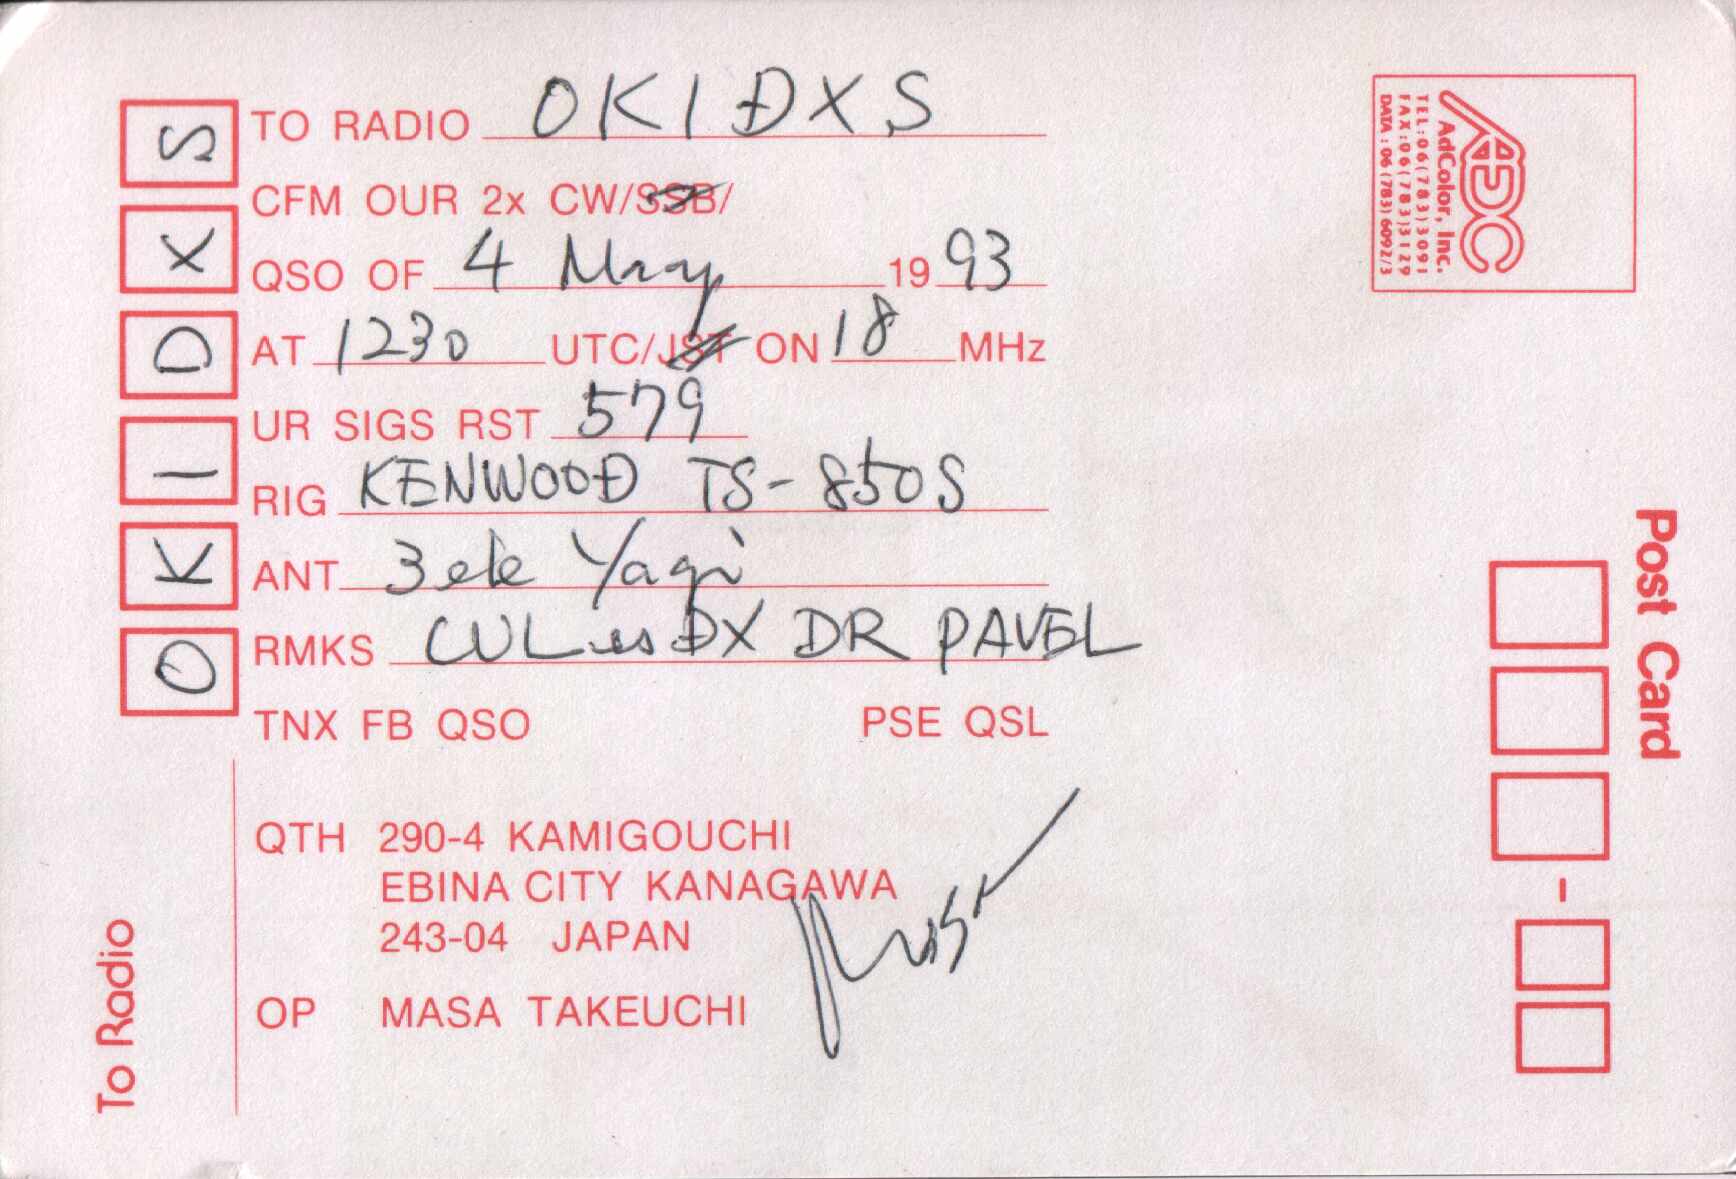 TO RADIO OK1DXS
CFM OUR 2x CW/SSB/
QSO OF 4 May 1993
AT 1230 UTC/JST ON 18 MHz
UR SIGS RST 579
RIG KENWOOD TS-850S
ANT 3ele Yagi
RMKS CUL es DX DR PAVEL
TNX FB QSO PSE QSL
QTH 290-4 KAMIGOUCHI
EBINA CITY KANAGAWA
243-04 JAPAN
OP MASA TAKEUCHI
Masa
To Radio
OK1DXS
Post Card
ADC
AdColor, Inc.
TEL:06(783)3091
FAX:06(783)3129
DATA:06(783)6092/3